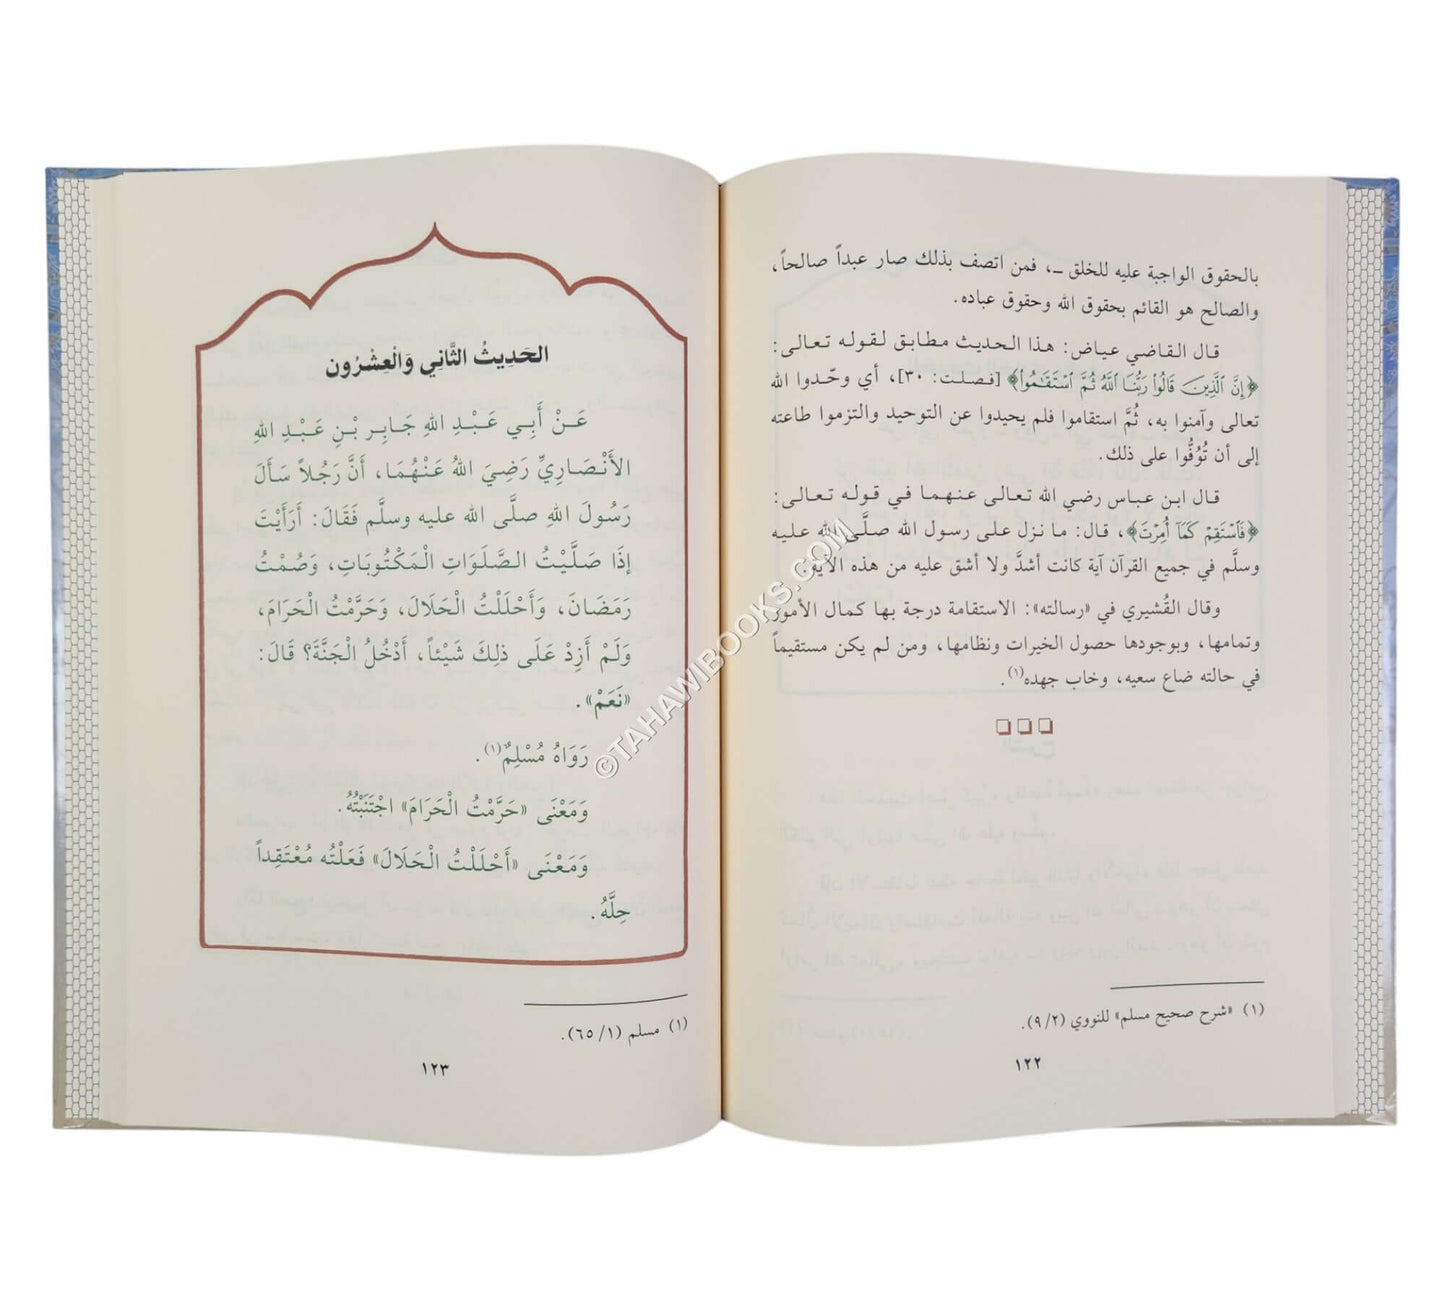 بالحقوق الواجبة عليه للخلق ـ، فمن اتصف بذلك صار عبداً صالحاً،
والصالح هو القائم بحقوق الله وحقوق عباده.
قال القاضي عياض: هذا الحديث مطابق لقوله تعالى:
﴿إِنَّ ٱلَّذِينَ قَالُوا۟ رَبُّنَا ٱللَّهُ ثُمَّ ٱسْتَقَٰمُوا۟﴾ [فصلت: ٣٠]، أي وحّدوا الله
تعالى وآمنوا به، ثُمَّ استقاموا فلم يحيدوا عن التوحيد والتزموا طاعته
إلى أن تُوُفُّوا على ذلك.
قال ابن عباس رضي الله تعالى عنهما في قوله تعالى:
﴿فَٱسْتَقِمْ كَمَآ أُمِرْتَ﴾، قال: ما نزل على رسول الله صلَّى الله عليه
وسلَّم في جميع القرآن آية كانت أشدَّ ولا أشق عليه من هذه الآية.
وقال القُشيري في «رسالته»: الاستقامة درجة بها كمال الأمور
وتمامها، وبوجودها حصول الخيرات ونظامها، ومن لم يكن مستقيماً
في حالته ضاع سعيه، وخاب جهده(١).
(١) «شرح صحيح مسلم» للنووي (٩/٢).
١٢٢
الحَدِيثُ الثَّانِي وَالْعِشْرُون
عَنْ أَبِي عَبْدِ اللهِ جَابِرِ بْنِ عَبْدِ اللهِ
الأَنْصَارِيِّ رَضِيَ اللهُ عَنْهُمَا، أَنَّ رَجُلاً سَأَلَ
رَسُولَ اللهِ صلَّى الله عليه وسلَّم فَقَالَ: أَرَأَيْتَ
إِذَا صَلَّيْتُ الصَّلَوَاتِ الْمَكْتُوبَاتِ، وَصُمْتُ
رَمَضَانَ، وَأَحْلَلْتُ الْحَلَالَ، وَحَرَّمْتُ الْحَرَامَ،
وَلَمْ أَزِدْ عَلَى ذلِكَ شَيْئاً، أَدْخُلُ الْجَنَّةَ؟ قَالَ:
«نَعَمْ».
رَوَاهُ مُسْلِمٌ(١).
وَمَعْنَى «حَرَّمْتُ الْحَرَامَ» اجْتَنَبْتُهُ.
وَمَعْنَى «أَحْلَلْتُ الْحَلَالَ» فَعَلْتُه مُعْتَقِداً
حِلَّهُ.
(١) مسلم (٦٥/١).
١٢٣
©TAHAWIBOOKS.COM